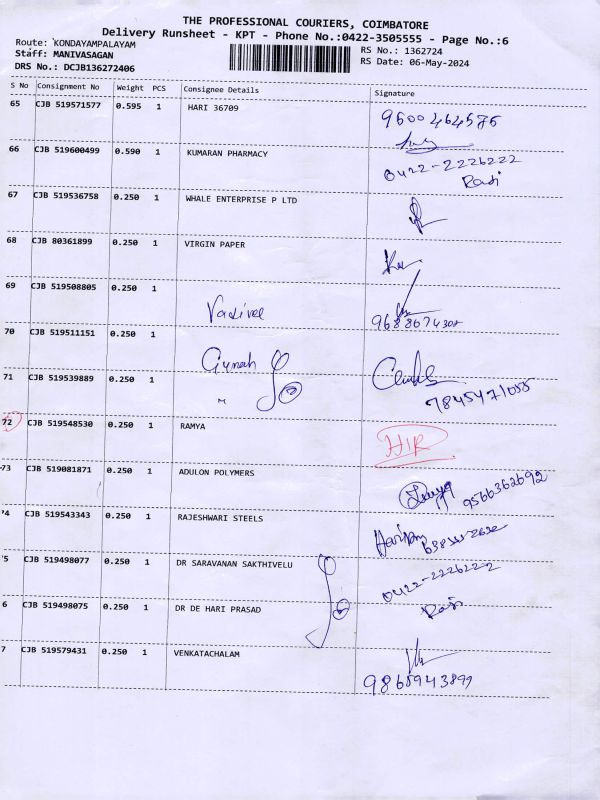 THE PROFESSIONAL COURIERS, COIMBATORE
Delivery Runsheet - KPT - Phone No.:0422-3505555 - Page No.:6
Route: KONDAYAMPALAYAM
Staff: MANIVASAGAN
DRS No.: DCJB136272406
RS No.: 1362724
RS Date: 06-May-2024
S No Consignment No Weight PCS Consignee Details Signature
65 CJB 519571577 0.595 1 HARI 36709
9600464575
66 CJB 519600499 0.590 1 KUMARAN PHARMACY
0422-2226222
Rasi
67 CJB 519536758 0.250 1 WHALE ENTERPRISE P LTD
68 CJB 80361899 0.250 1 VIRGIN PAPER
69 CJB 519508805 0.250 1
Vadivel
70 CJB 519511151 0.250 1
Gunah
71 CJB 519539889 0.250 1
7845471055
72 CJB 519548530 0.250 1 RAMYA
73 CJB 519081871 0.250 1 ADULON POLYMERS
9566362692
74 CJB 519543343 0.250 1 RAJESHWARI STEELS
5 CJB 519498077 0.250 1 DR SARAVANAN SAKTHIVELU
0422-2226222
6 CJB 519498075 0.250 1 DR DE HARI PRASAD
Rasi
7 CJB 519579431 0.250 1 VENKATACHALAM
9865943899